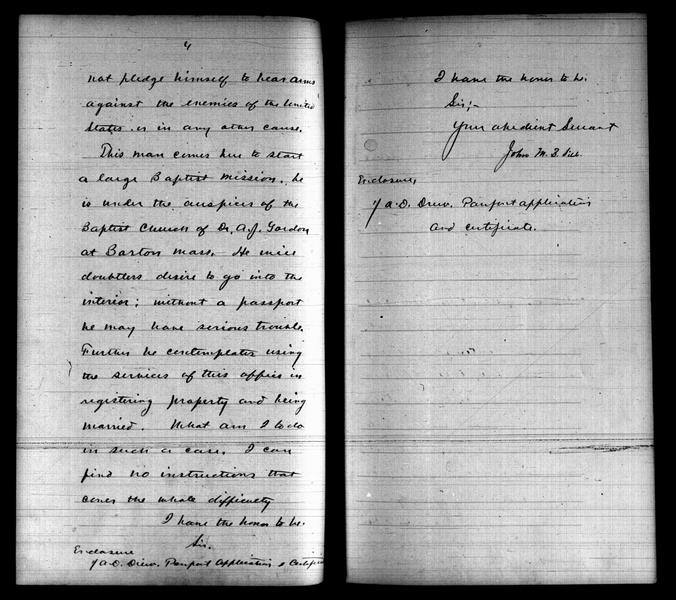 4
not pledge himself to bear arms
against the enemies of the United
States or in any other cause.
This man comes here to start
a large Baptist mission. he
is under the auspices of the
Baptist Church of Dr. A. J. Gordon
at Boston Mass. He will
doubtless desire to go into the
interior; without a passport
he may have serious trouble.
Further he contemplates using
the services of this office in
registering property and being
married. What am I to do
in such a case. I can
find no instructions that
cover the whole difficulty
I have the honor to be.
Sir.
Enclosure
A. D. Drew. Passport Application & Certific
I have the honor to be.
Sir;-
Your obedient Servant
John M. B.
Enclosure,
A. D. Drew. Passport application
and certificate.